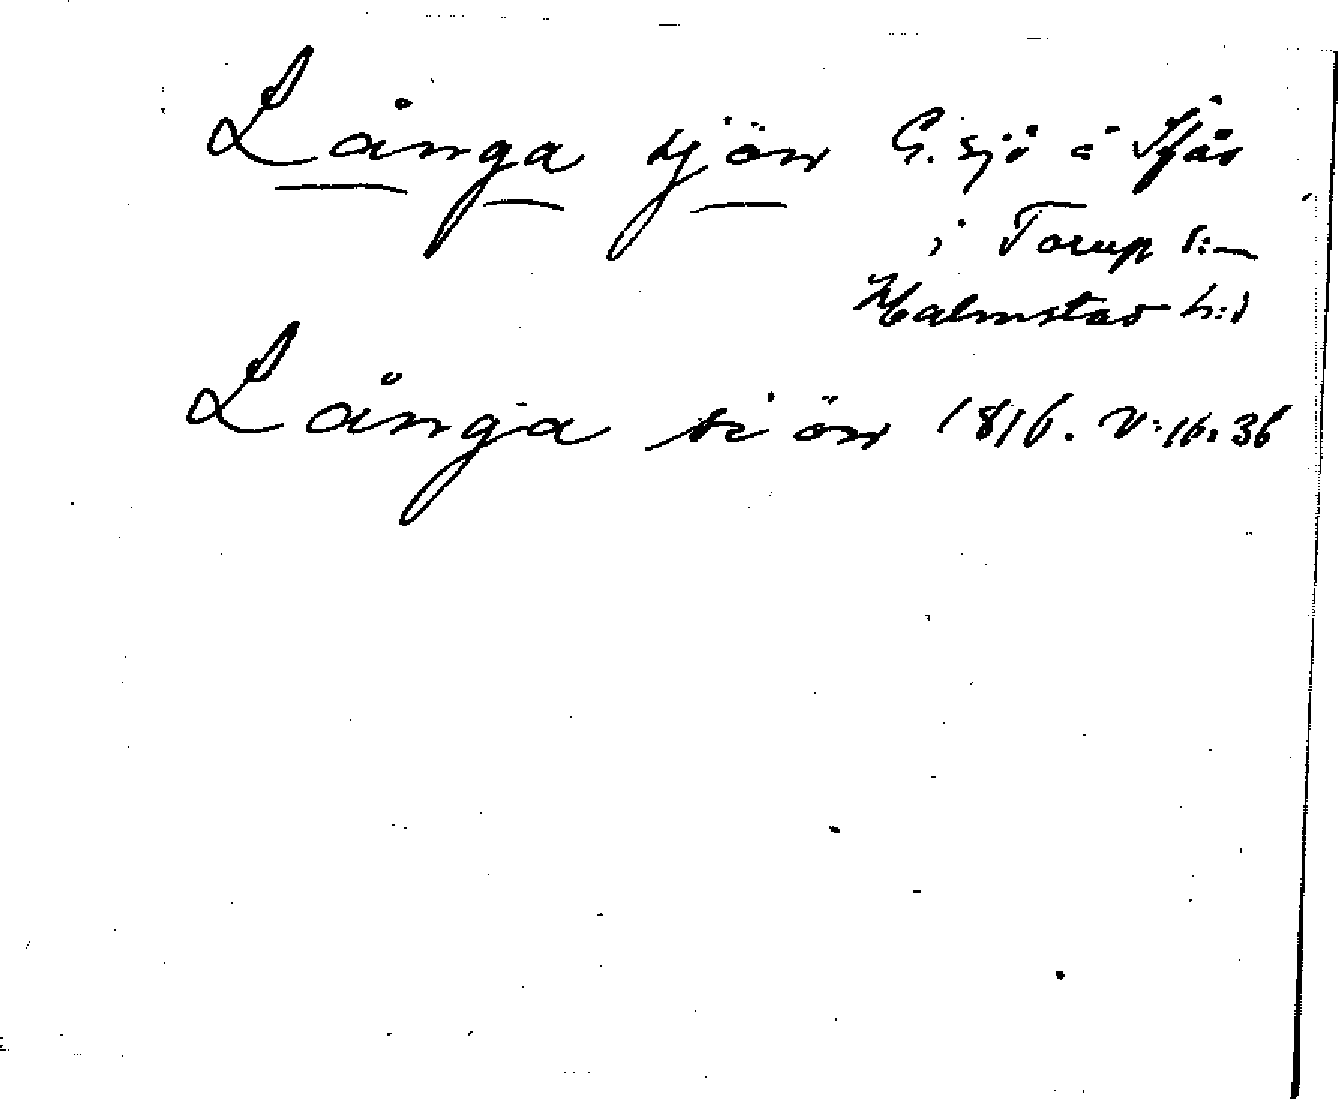 Långa sjön G. sjö å
i Torup s:n
Halmstad h:d
Långa siön 1816. V: 16. 36